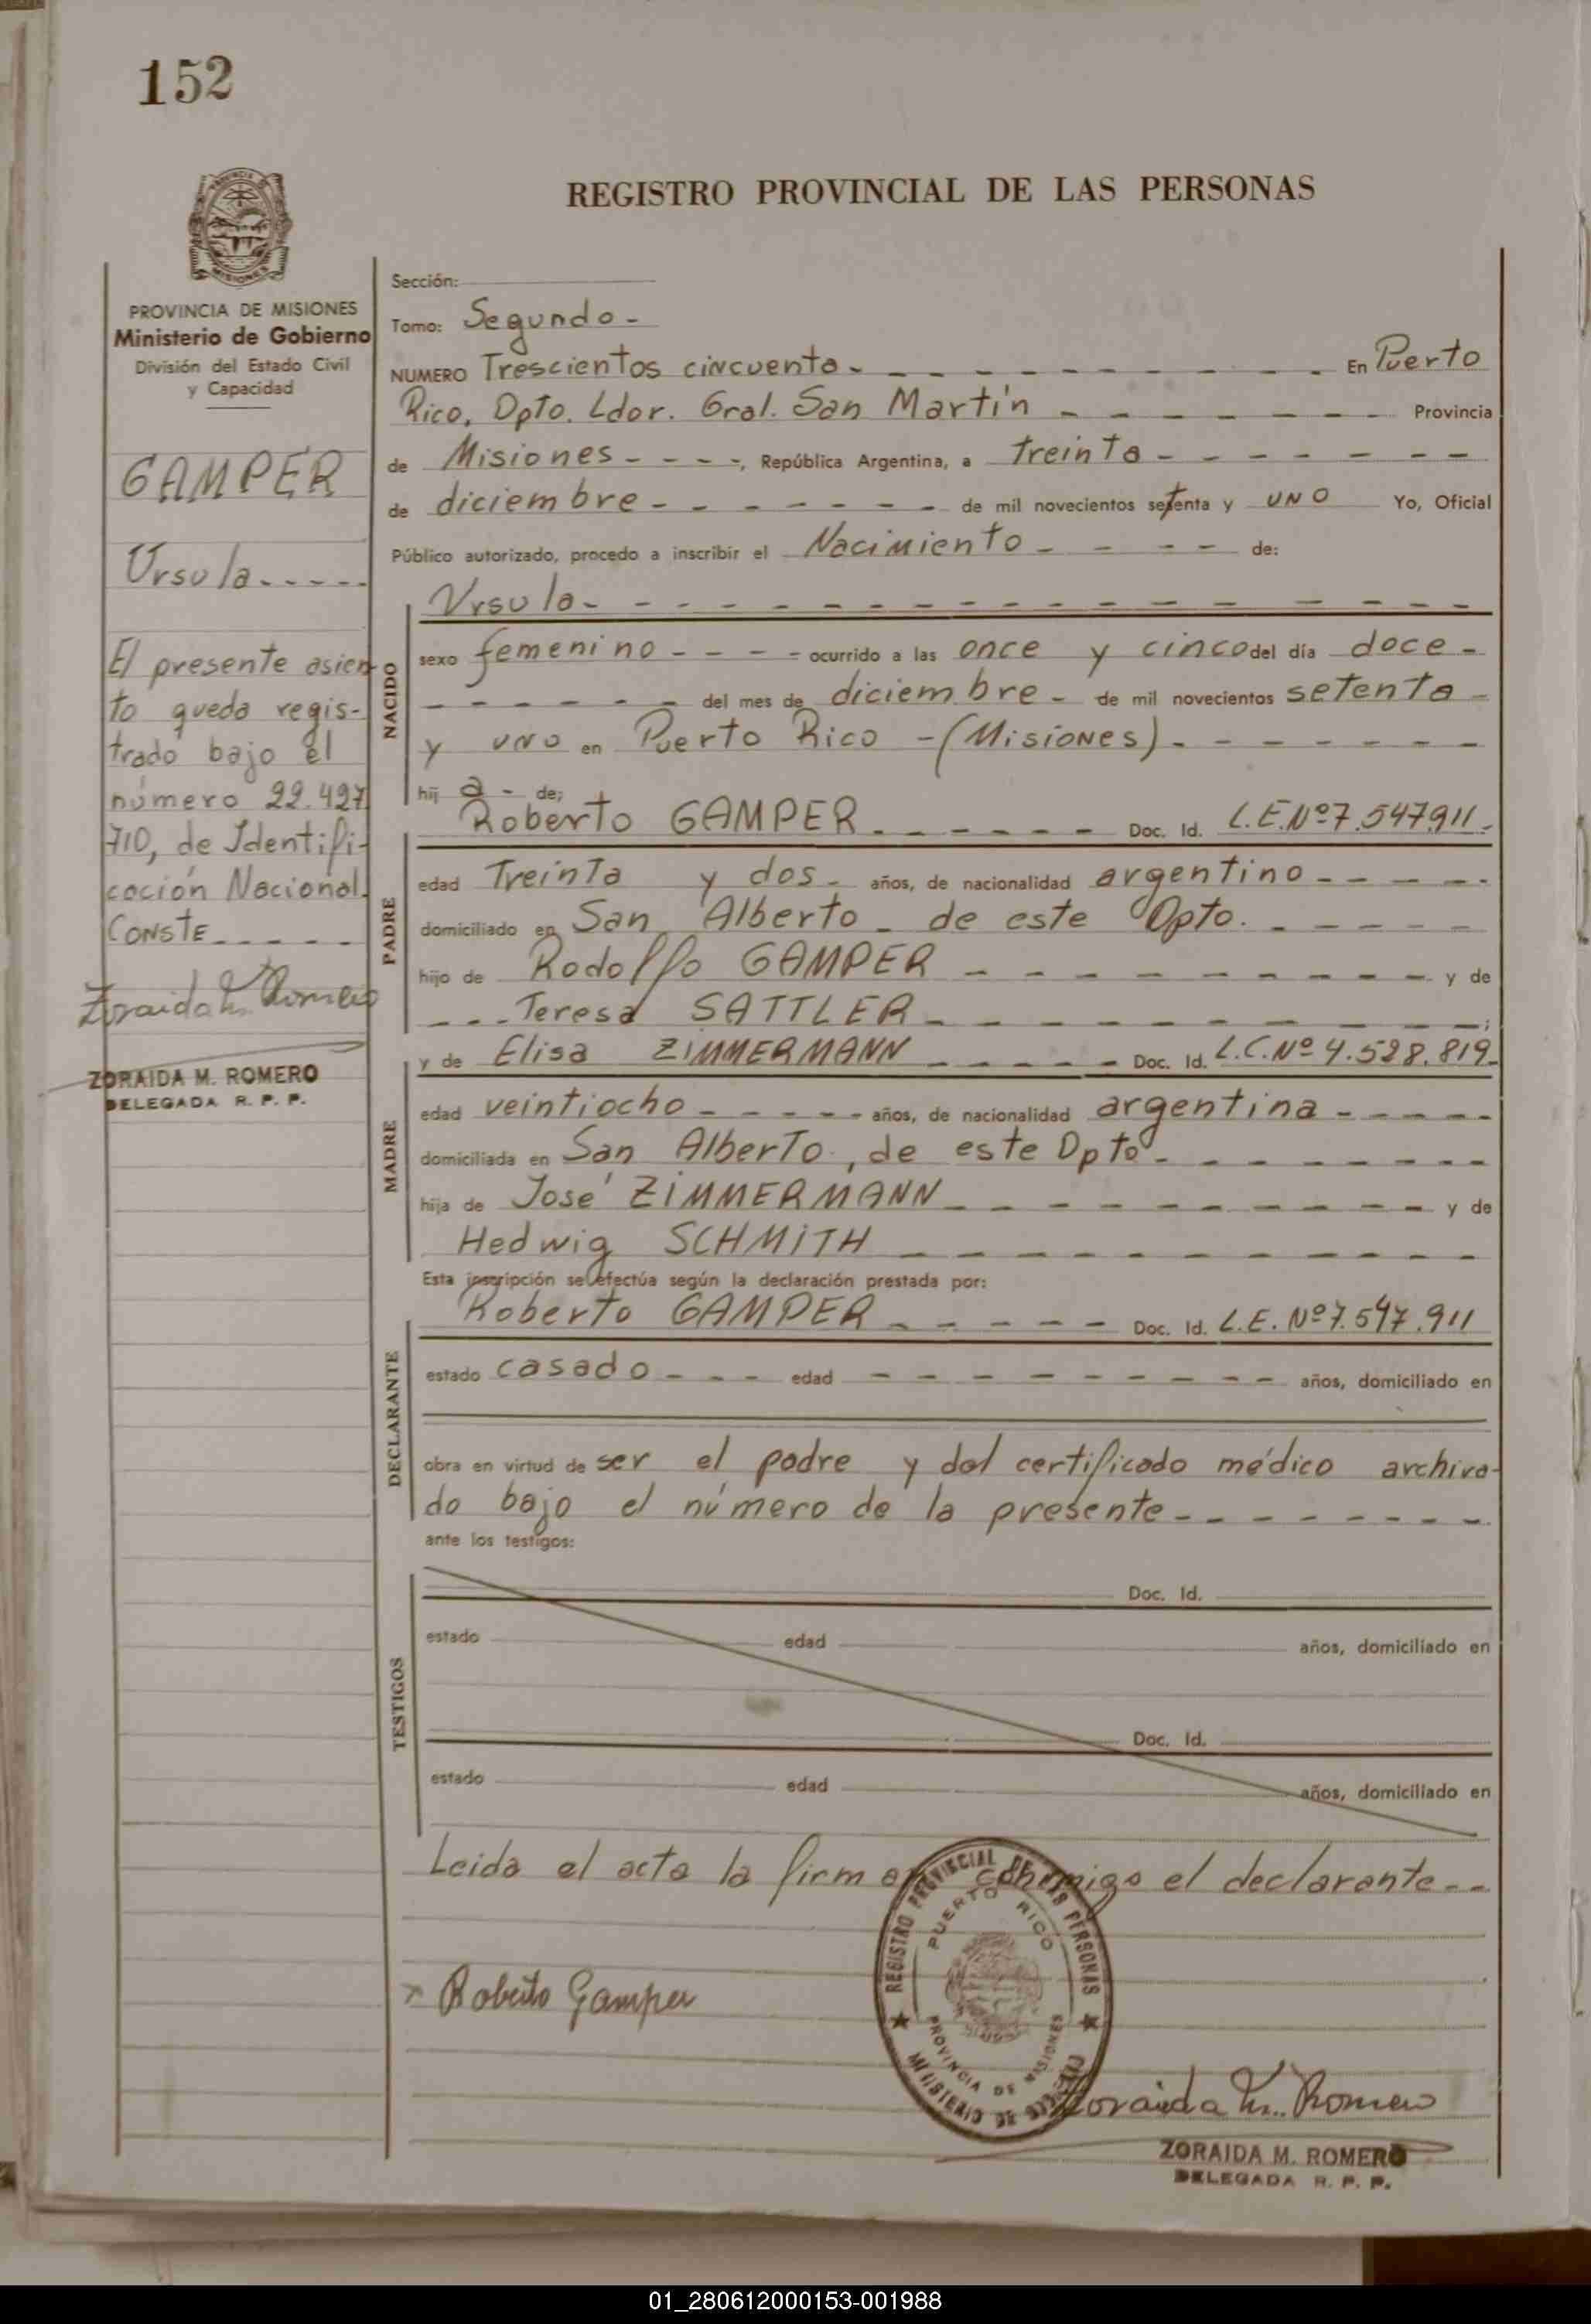 152
REGISTRO PROVINCIAL DE LAS PERSONAS
PROVINCIA DE MISIONES
Ministerio de Gobierno
División del Estado Civil
y Capacidad
GAMPER
Ursula-----
El presente asien
to queda regis-
trado bajo el
número 22.427
710, de Identifi-
cación Nacional.
CONSTE-----
Zoraida M. Romero
ZORAIDA M. ROMERO
DELEGADA R. P. P.
Sección:
Tomo: Segundo-
NUMERO Trescientos cincuenta- - - - - - - - - En Puerto
Rico, Dpto. Ldor. Gral. San Martín - - - - - - - Provincia
de Misiones- - - -, República Argentina, a treinta- - - - - - - -
de diciembre- - - - - - - - de mil novecientos setenta y uno Yo, Oficial
Público autorizado, procedo a inscribir el Nacimiento- - - - - de:
NACIDO
Ursula- - - - - - - - - - - - - - - - - - - -
sexo femenino- - - - ocurrido a las once y cinco del día doce-
- - - - - - del mes de diciembre- de mil novecientos setenta-
y uno en Puerto Rico -(Misiones)- - - - - - -
hij a - de:
PADRE
Roberto GAMPER- - - - - - Doc. Id. L.E.Nº7.547.911.-
edad Treinta y dos- años, de nacionalidad argentino- - - - -
domiciliado en San Alberto- de este Dpto.- - - - - -
hijo de Rodolfo GAMPER - - - - - - - - - - y de
- - -Teresa SATTLER- - - - - - - - - - - -;
MADRE
y de Elisa ZIMMERMANN - - - - - Doc. Id. L.C.Nº 4.528.819-
edad veintiocho- - - - - años, de nacionalidad argentina- - - - -
domiciliada en San Alberto, de este Dpto- - - - - - - - -
hija de José ZIMMERMANN- - - - - - - - - - y de
Hedwig SCHMITH - - - - - - - - - - -
Esta inscripción se efectúa según la declaración prestada por:
DECLARANTE
Roberto GAMPER- - - - - - Doc. Id. L.E. Nº7.547.911
estado casado- - - edad - - - - - - - - - - años, domiciliado en
obra en virtud de ser el padre y del certificado médico archiva-
do bajo el número de la presente- - - - - - - -
ante los testigos:
TESTIGOS
Doc. Id.
estado edad años, domiciliado en
Doc. Id.
estado edad años, domiciliado en
Leida el acta la firma conmigo el declarante--
REGISTRO PROVINCIAL DE LAS PERSONAS
PUERTO RICO
PROVINCIA DE MISIONES
MINISTERIO DE GOBIERNO
x Roberto Gamper
Zoraida M. Romero
ZORAIDA M. ROMERO
DELEGADA R. P. P.
01_280612000153-001988